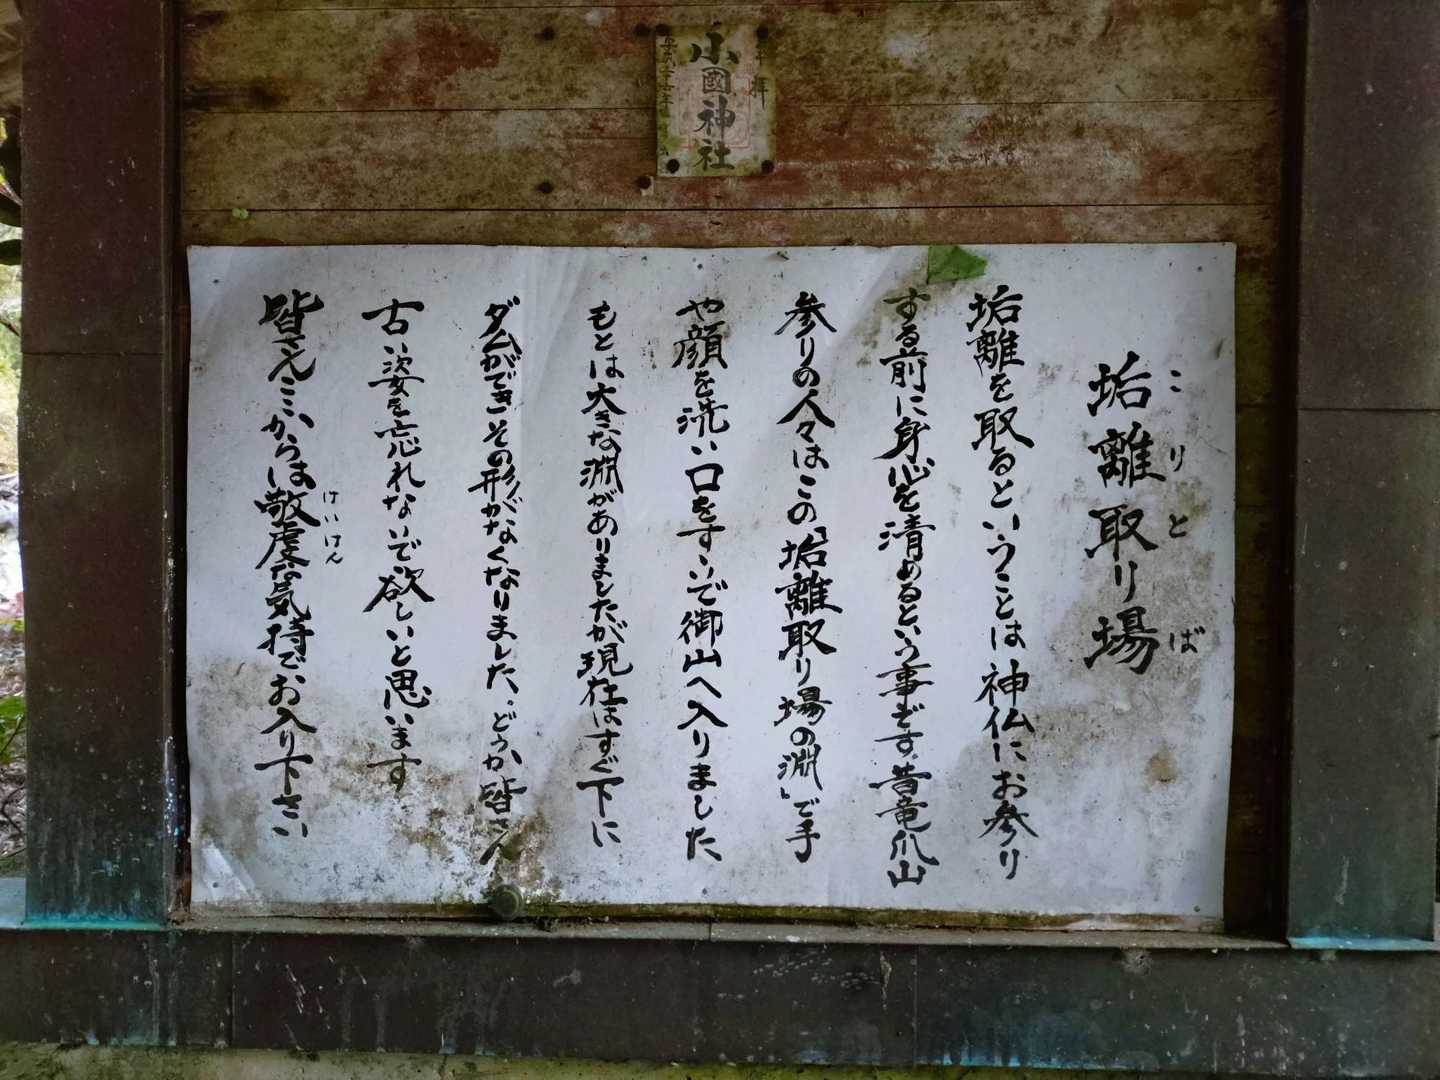 小國神社
奉拝
垢離取り場
こりとば
垢離を取るということは神仏にお参り
する前に身心を清めるという事です。昔竜爪山
参りの人々はこの「垢離取り場の淵」で手
や顔を洗い口をすゝいで御山へ入りました
もとは大きな淵がありましたが現在はすぐ下に
ダムができその形がなくなりました、どうか皆さん
古い姿を忘れないで欲しいと思います
皆さんこゝからは敬虔な気持でお入り下さい
けいけん